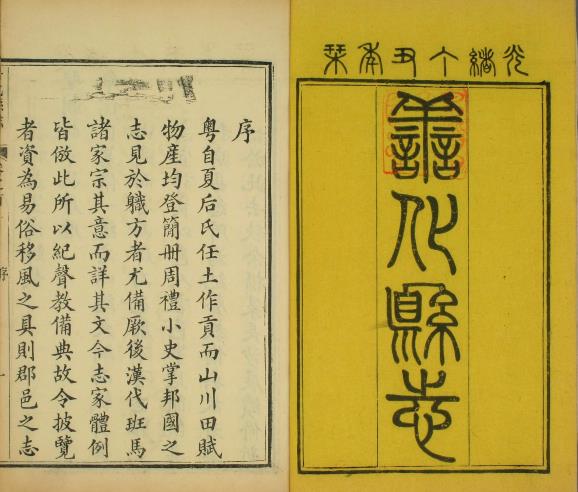 光緒丁丑年栞
善化縣志
序
粵自夏后氏任土作貢而山川田賦
物産均登簡册周禮小史掌邦國之
志見於職方者尤備厥後漢代班馬
諸家宗其意而詳其文今志家體例
皆倣此所以紀聲教備典故令披覽
者資為易俗移風之具則郡邑之志
序
一